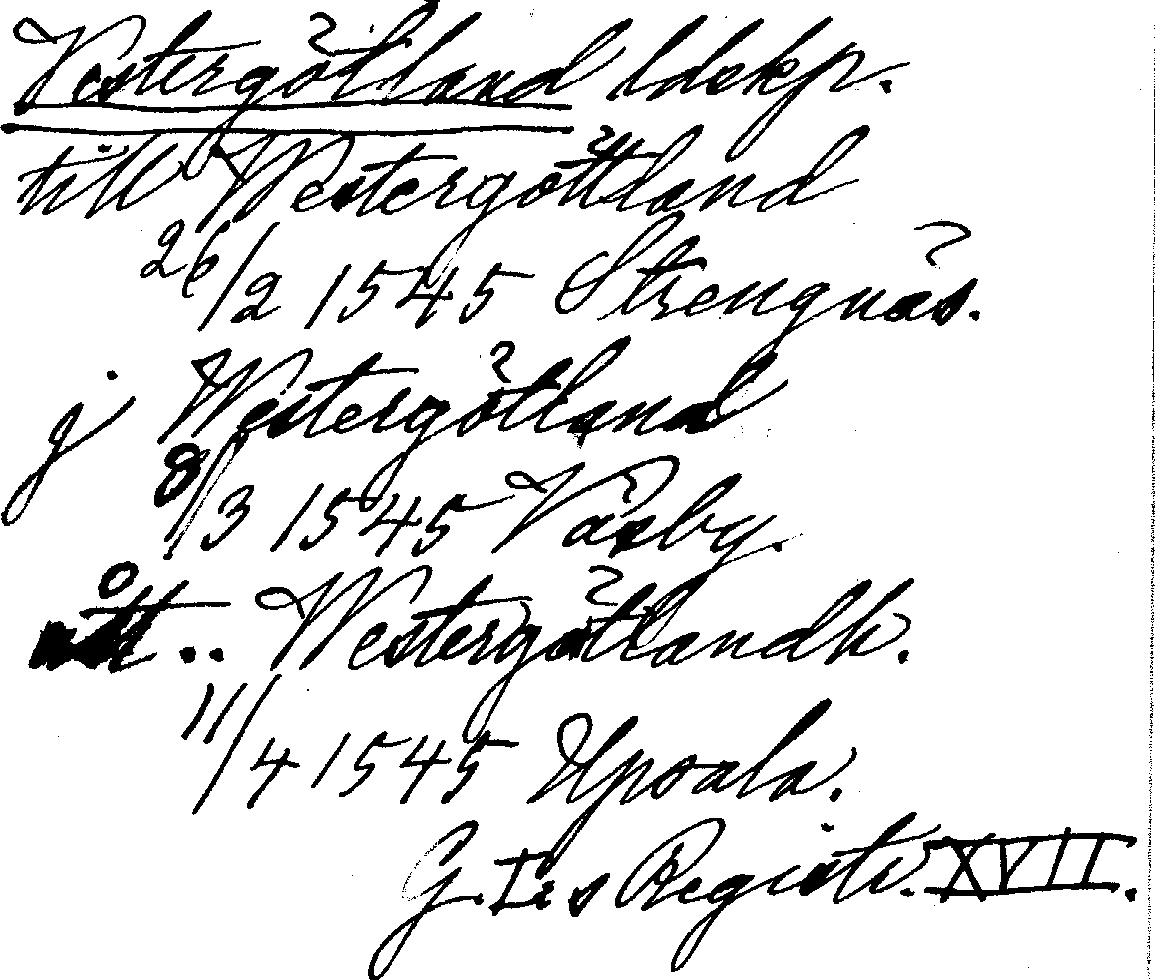 Västergötland ldskp.
till Westergöttland
26/2 1545 Strengnäs.
j Westergötland
8/3 1545 Väsby.
utt.. Westergötlandh.
11/4 1545 Upsala.
G. I:s Registr. XVII.